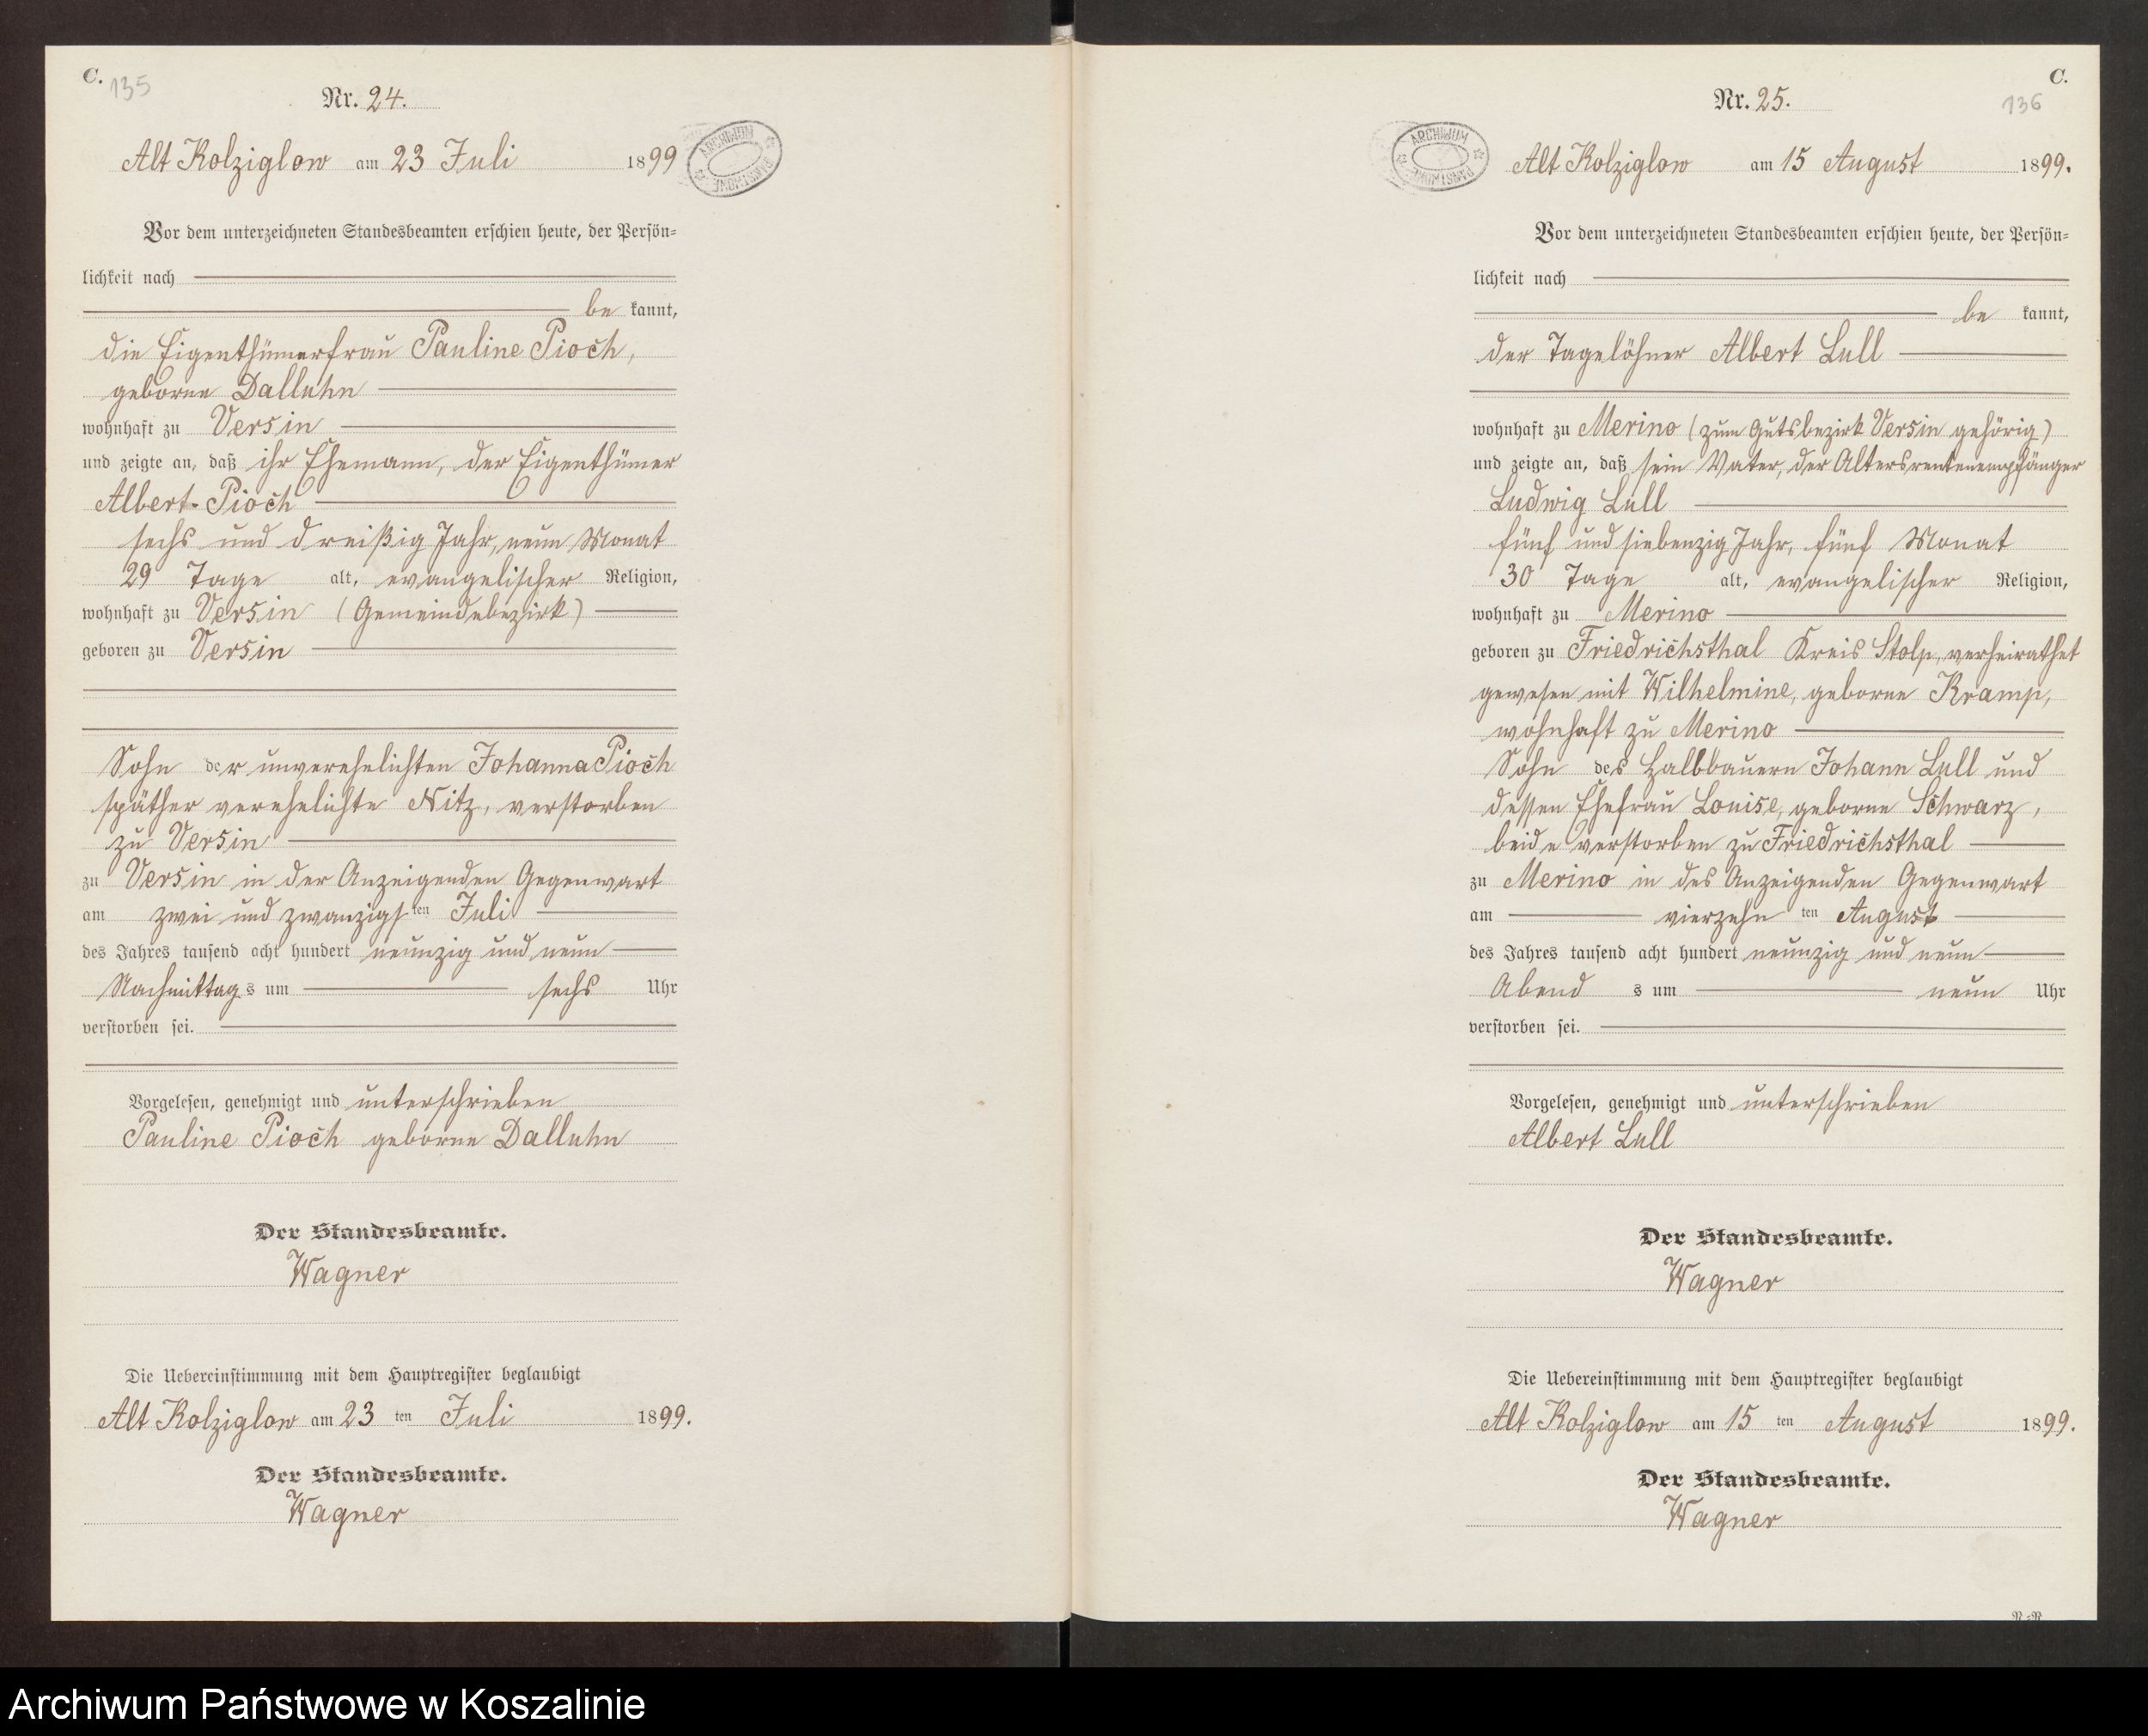 C.
135
Nr. 24.
Alt Kolziglow am 23 Juli 1899
ARCHIWUM PAŃSTWOWE
Vor dem unterzeichneten Standesbeamten erschien heute, der Persön-
lichkeit nach
be kannt,
die Eigenthümerfrau Pauline Pioch,
geborne Dalluhn
wohnhaft zu Versin
und zeigte an, daß ihr Ehemann, der Eigenthümer
Albert Pioch
sechs und dreißig Jahr, neun Monat
29 Tage alt, evangelischer Religion,
wohnhaft zu Versin (Gemeindebezirk)
geboren zu Versin
Sohn der unverehelichten Johanna Pioch
späther verehelichte Nitz, verstorben
zu Versin
zu Versin in der Anzeigenden Gegenwart
am zwei und zwanzigsten Juli
des Jahres tausend acht hundert neunzig und neun
Nachmittags um sechs Uhr
verstorben sei.
Vorgelesen, genehmigt und unterschrieben
Pauline Pioch geborne Dalluhn
Der Standesbeamte.
Wagner
Die Uebereinstimmung mit dem Hauptregister beglaubigt
Alt Kolziglow am 23 ten Juli 1899.
Der Standesbeamte.
Wagner
C.
136
Nr. 25.
ARCHIWUM PAŃSTWOWE
Alt Kolziglow am 15 August 1899.
Vor dem unterzeichneten Standesbeamten erschien heute, der Persön-
lichkeit nach
be kannt,
der Tagelöhner Albert Lull
wohnhaft zu Merino (zum Gutsbezirk Versin gehörig)
und zeigte an, daß sein Vater, der Altersrentenempfänger
Ludwig Lull
fünf und siebenzig Jahr, fünf Monat
30 Tage alt, evangelischer Religion,
wohnhaft zu Merino
geboren zu Friedrichsthal Kreis Stolp, verheirathet
gewesen mit Wilhelmine, geborne Kramp,
wohnhaft zu Merino
Sohn des Halbbauern Johann Lull und
dessen Ehefrau Louise, geborne Schwarz,
beide verstorben zu Friedrichsthal
zu Merino in des Anzeigenden Gegenwart
am vierzehn ten August
des Jahres tausend acht hundert neunzig und neun
Abend s um neun Uhr
verstorben sei.
Vorgelesen, genehmigt und unterschrieben
Albert Lull
Der Standesbeamte.
Wagner
Die Uebereinstimmung mit dem Hauptregister beglaubigt
Alt Kolziglow am 15 ten August 1899.
Der Standesbeamte.
Wagner
Archiwum Państwowe w Koszalinie